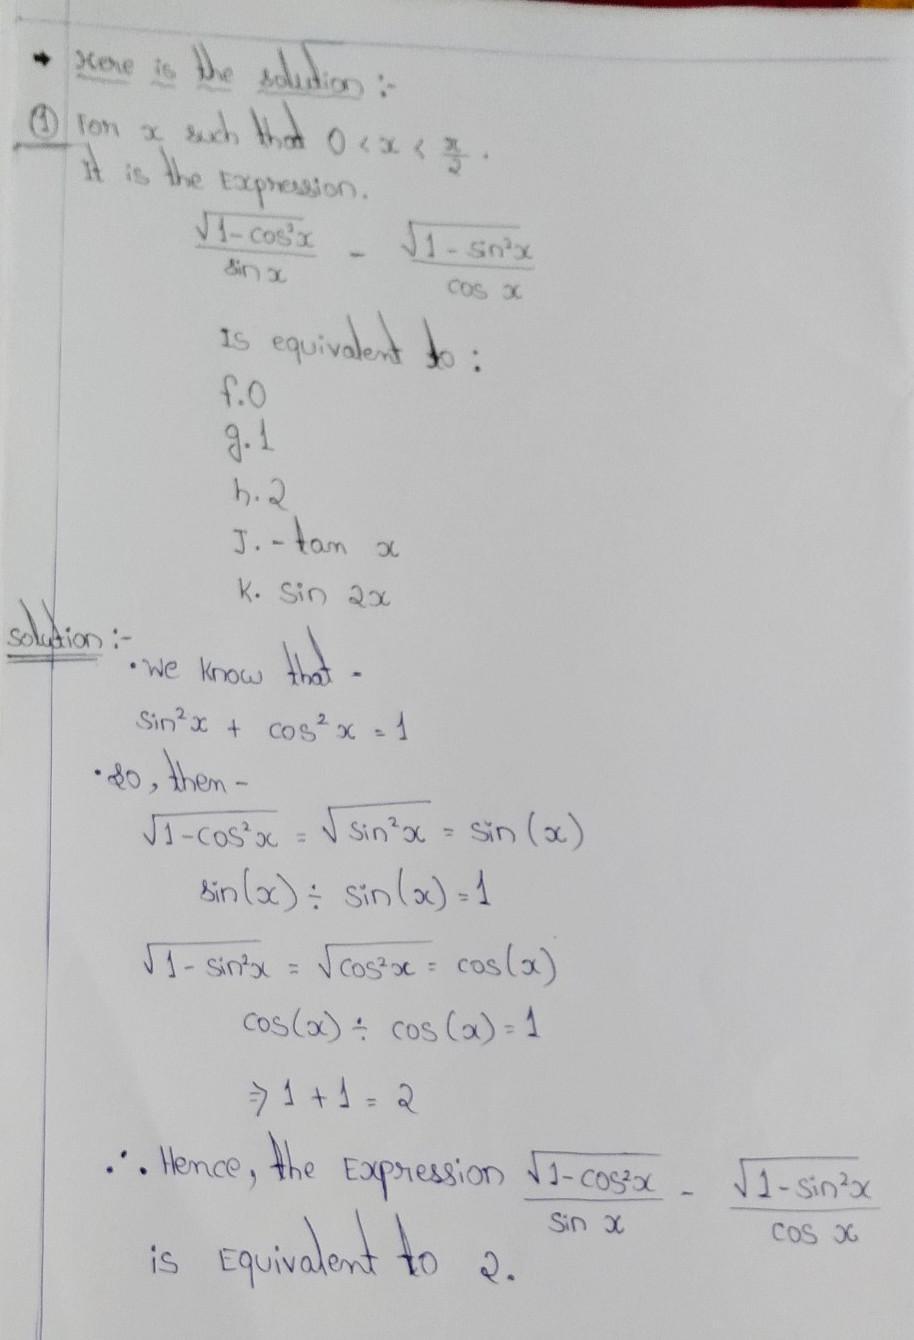 → Here is the solution :-
① For x such that 0 < x < π/2 .
It is the Expression.
√(1-cos²x)/sin x - √(1-sin²x)/cos x
Is equivalent to :
f. 0
g. 1
h. 2
J. -tan x
K. sin 2x
solution :-
• we know that -
sin²x + cos²x = 1
• so, then -
√(1-cos²x) = √(sin²x) = sin(x)
sin(x) ÷ sin(x) = 1
√(1-sin²x) = √(cos²x) = cos(x)
cos(x) ÷ cos(x) = 1
⇒ 1 + 1 = 2
∴ Hence, the Expression √(1-cos²x)/sin x - √(1-sin²x)/cos x
is Equivalent to 2.